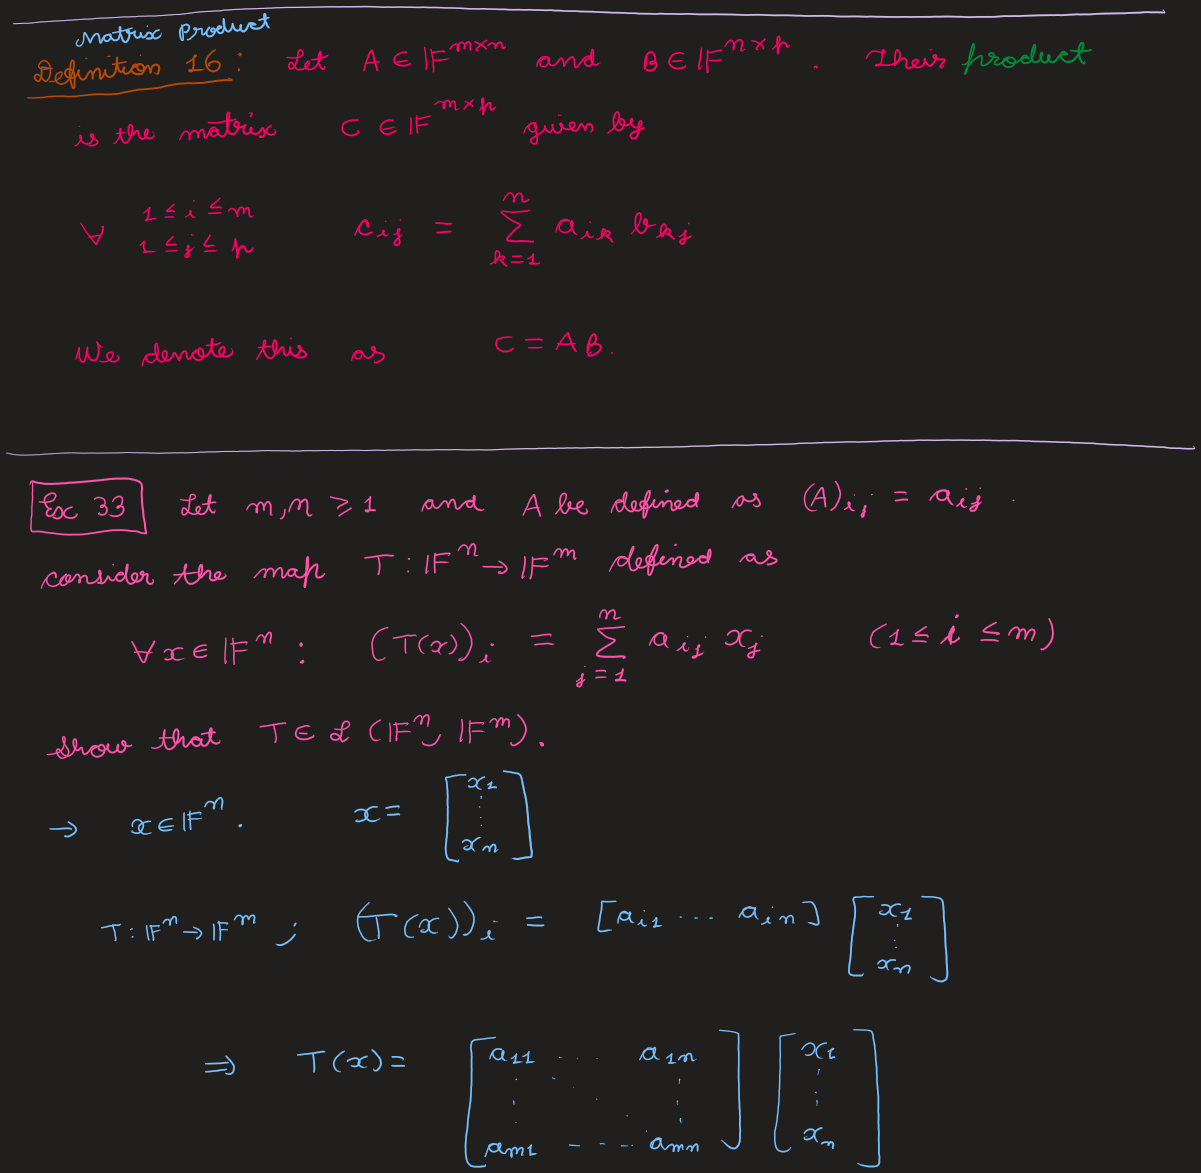 Matrix Product
Definition 16: Let A ∈ 𝔽^{m×n} and B ∈ 𝔽^{n×p}. Their product
is the matrix C ∈ 𝔽^{m×p} given by
∀ 1 ≤ i ≤ m, 1 ≤ j ≤ p c_{ij} = ∑_{k=1}^{n} a_{ik} b_{kj}
We denote this as C = AB.
Ex 33 Let m,n ≥ 1 and A be defined as (A)_{ij} = a_{ij}.
consider the map T : 𝔽^n → 𝔽^m defined as
∀ x ∈ 𝔽^n : (T(x))_i = ∑_{j=1}^{n} a_{ij} x_j (1 ≤ i ≤ m)
Show that T ∈ ℒ(𝔽^n, 𝔽^m).
→ x ∈ 𝔽^n. x = [x_1 ⋮ x_n]
T : 𝔽^n → 𝔽^m ; (T(x))_i = [a_{i1} ... a_{in}] [x_1 ⋮ x_n]
⇒ T(x) = [a_{11} ... a_{1n} ⋮ ⋱ ⋮ a_{m1} ... a_{mn}] [x_1 ⋮ x_n]